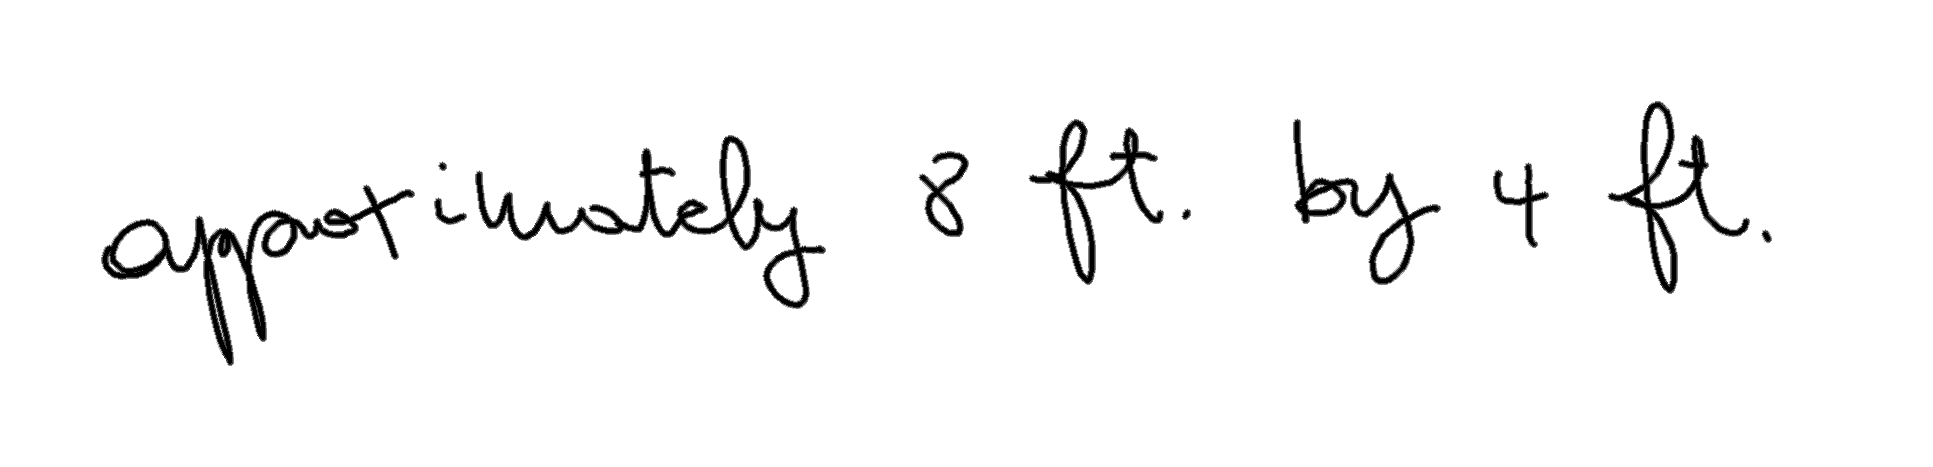 approximately 8 ft. by 4 ft.